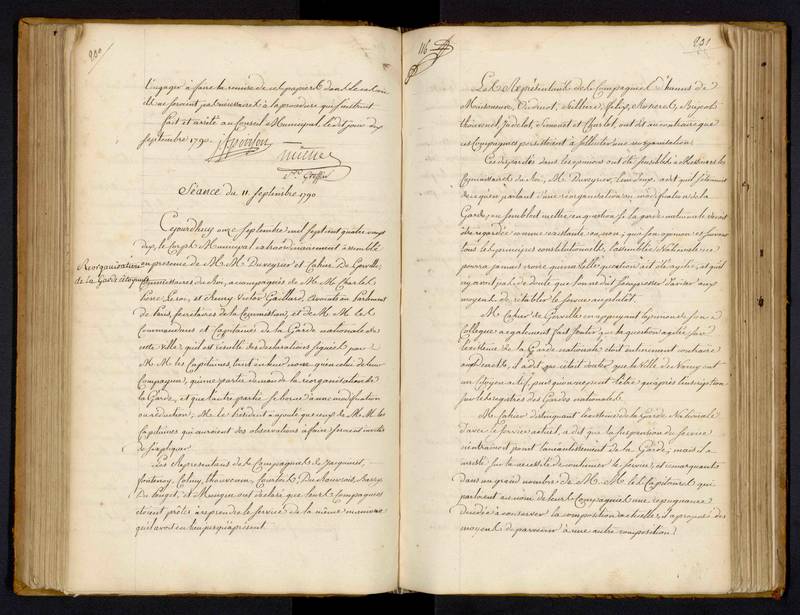 230
l'engager à faire la remise de ces papiers dont les
ne seraient pas nécessaires à la procédure qui s'instruit
Fait et arrêté au Conseil Municipal, ledit jour dix
septembre 1790.
Séance du 11. Septembre 1790
Cejourdhuy onze septembre mil sept cent quatre vingt
dix, le Corps Municipal extraordinairement assemblé
Reorganisation
de la Garde citoyenne
en presence de M. M. Duveyrier et Cahier De Gerville,
Commissaires du Roi, accompagnés de M. M. Charles
Pierre Leroi, et Henry Victor Gaillard, Avocats au Parlement
de Paris, Secrétaires de la Commission, et de M. M. les
Commandans et Capitaines de la Garde nationale de
cette ville, qu'il est resulté des declarations signées par
M. M. les Capitaines, tant en leur nom qu'en celui de leur
Compagnie, qu'une partie demande la réorganisation de
la Garde, et que l'autre partie se borne à une modification
ou réduction, Mr. le Président a ajouté que ceux de M. M. les
Capitaines qui auroient des observations à faire seroient invités
de s'expliquer.
Les Representans des Compagnies de Jacquinet,
Fontenoy, Coliny, Thouvenin, Du
Du et ont déclaré que leurs Compagnies
etoient prêtes à reprendre le service de la même manière
qu'il avoit eu lieu jusqu'à present.
116
231
Les Représentants des Compagnies de
Maisonneuve,
Thouvenel, et Charlot, ont dit au contraire que
ces Compagnies persistoient à solliciter une réorganisation.
Ces disparités dans les opinions ont été sensibles à Messieurs les
Commissaires du Roi, M. Duveyrier, l'un deux a dit qu'il s'étonnoit
de ce qu'en parlant d'une réorganisation ou modification de la
Garde, on sembloit mettre en question si la garde nationale devoit
être regardée comme existante ou non; que son opinion est suivant
tous les principes constitutionels, l'assemblée Nationale ne
pourra jamais croire qu'une telle question ait été agitée, et qu'il
n'y avoit pas de doute que l'on ne dût s'empresser d'aviser aux
moyens de rétablir le service au plutôt.
M. Cahier de Gerville en appuyant l'opinion de son
Collegue a également fait sentir que la question agitée sur
l'existence de la Garde nationale étoit entierement contraire
aux Décrets, il a dit que c'étoit douter que la Ville de Nancy eut
un Citoyen actif, puisqu'on ne peut l'être qu'après l'inscription
sur les registres des Gardes nationales.
M. Cahier distinguant l'existence de la Garde Nationale
d'avec le service actuel, a dit que la suspension du service
n'entrainoit point l'anéantissement de la Garde; mais il a
insisté sur la nécessité de continuer le service, et remarquant
dans un grand nombre de M. M. les Capitaines qui
parloient au nom de leurs Compagnies une repugnance
décidée à conserver la composition actuelle, il a proposé des
moyens de parvenir à une autre composition.